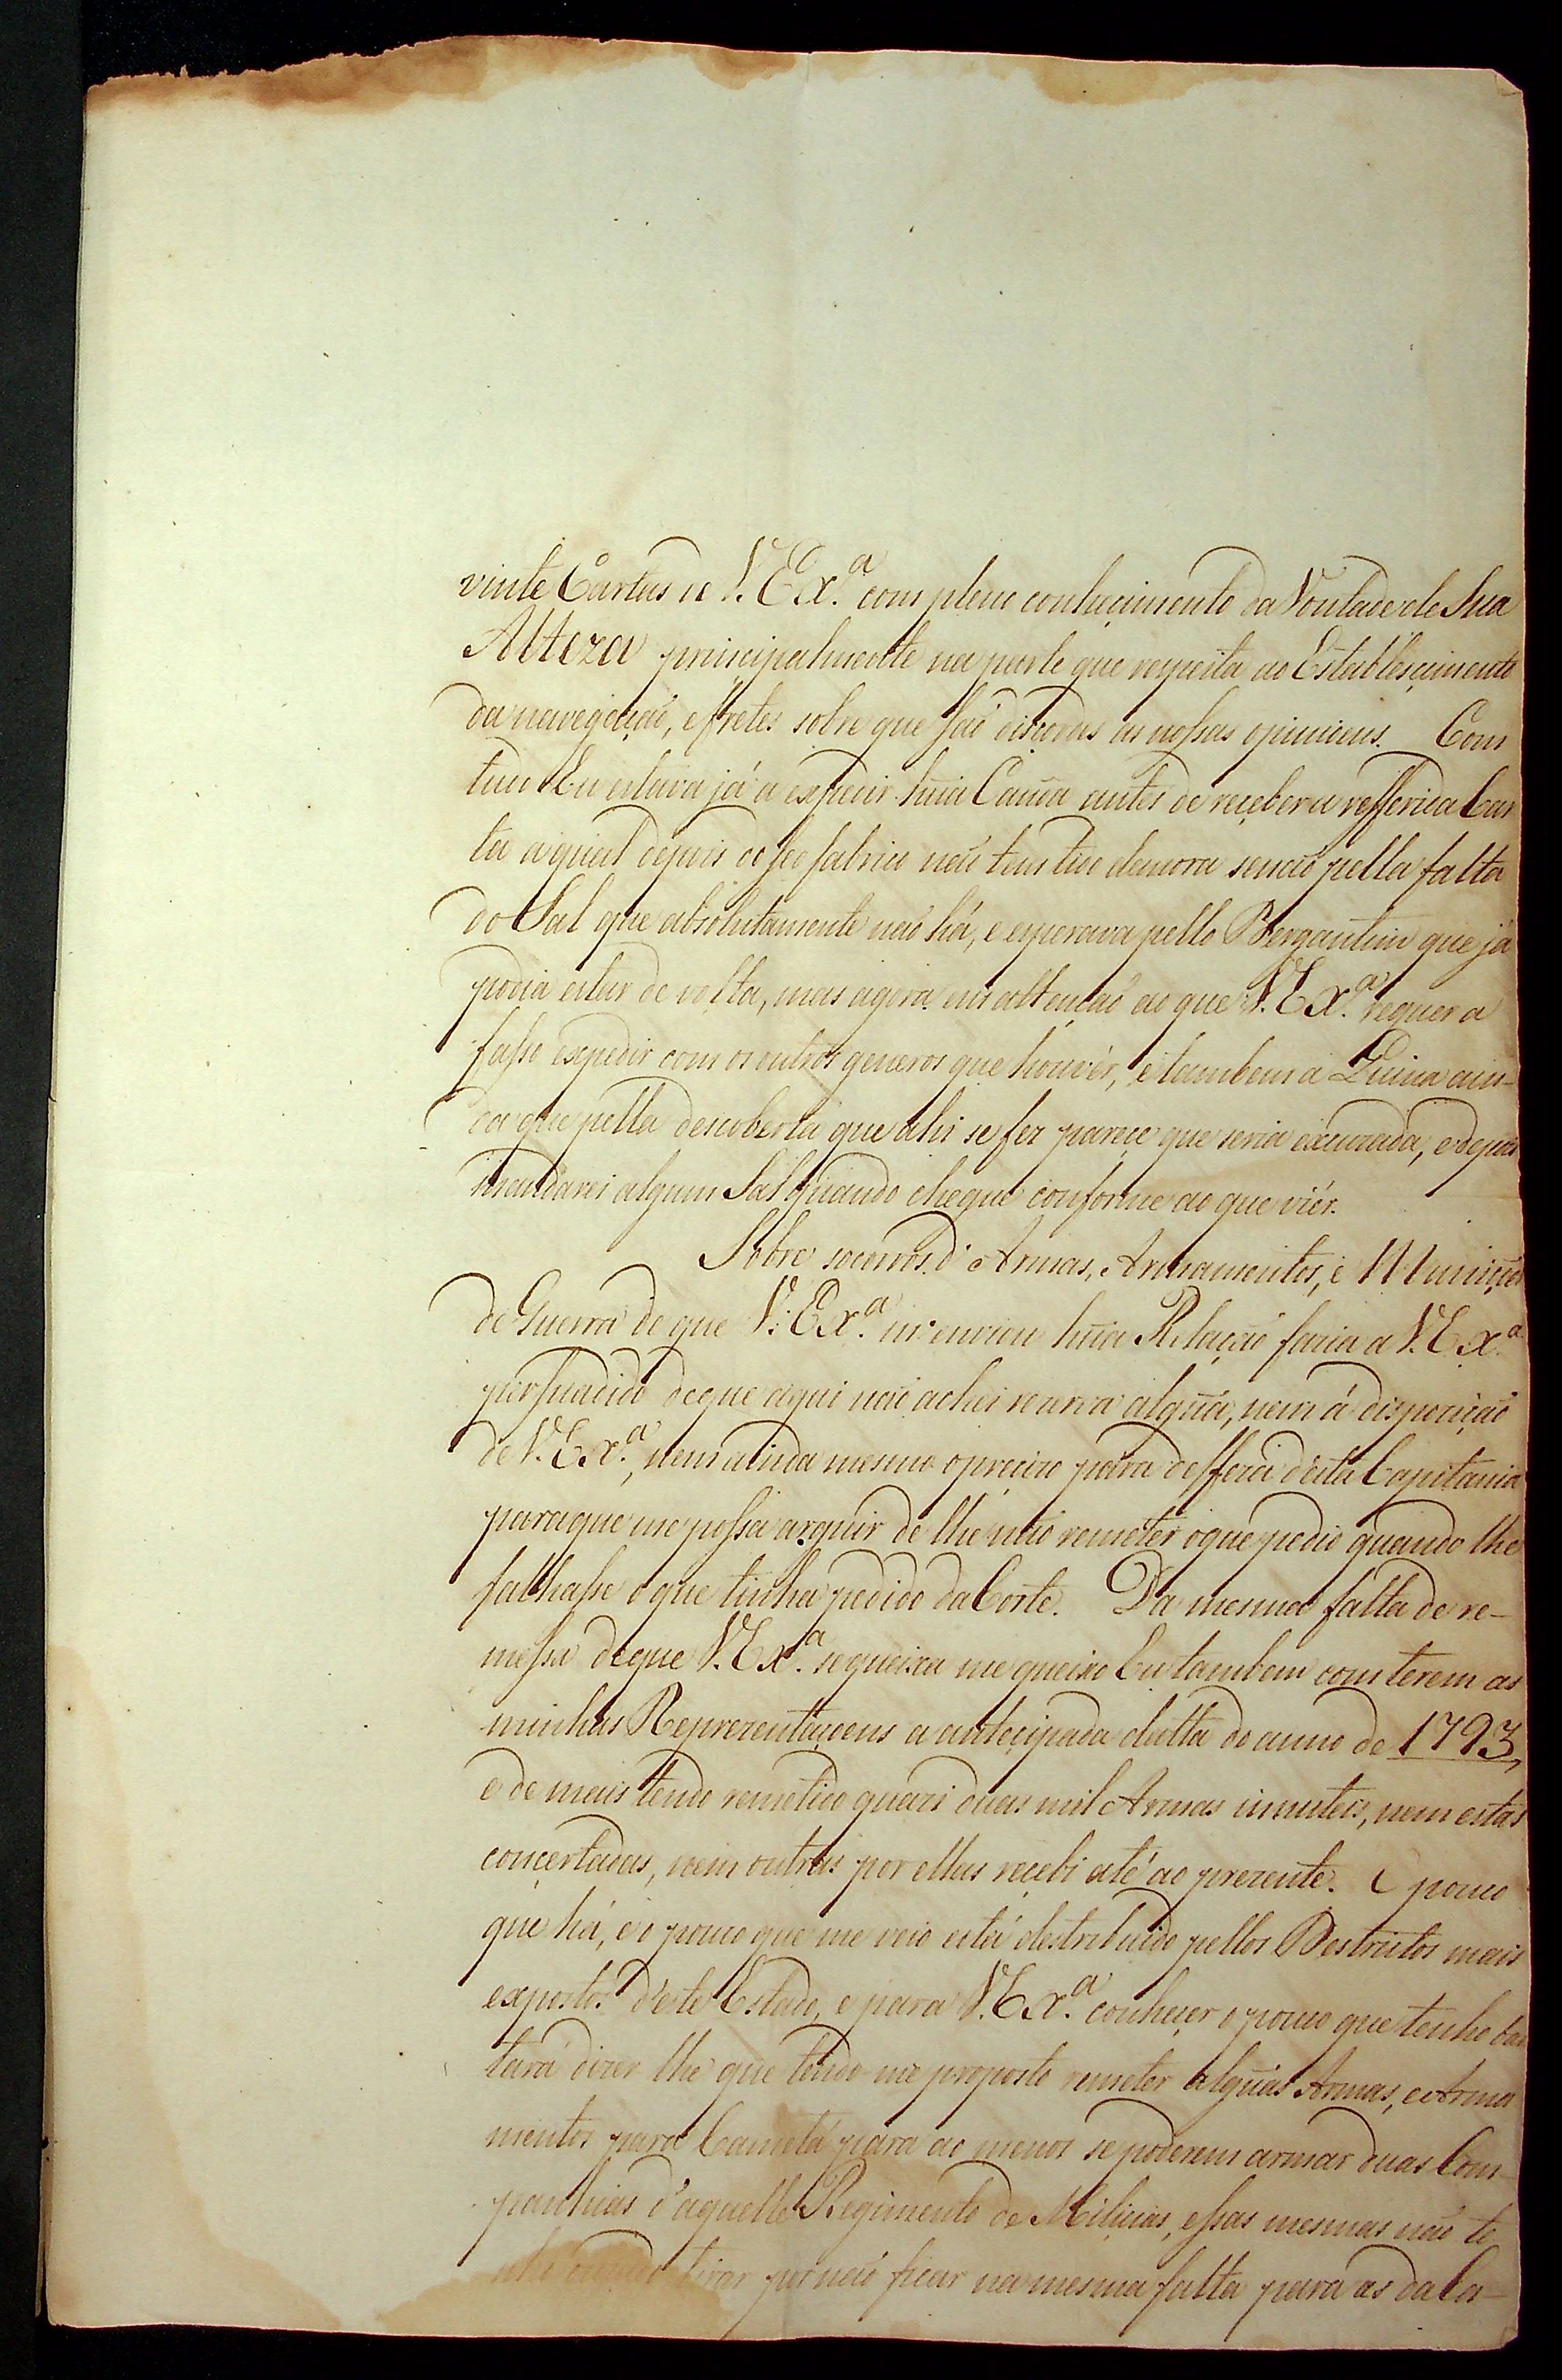 vinte Cartas de V. Ex.ª com pleno conheçimento da Vontade de Sua
Alteza principalmente na parte que respeita ao Establesçimento
da navegação, e fretes sobre que são discordes as nossas opinioens. Com
tudo Eu estava já a expedir hũa Canoa antes de reçeber a refferida Car
ta a qual depois de  não tem tido demora senão pella falta
do Sal que absolutamente não há, e esperava pello Bergantim que já
podia estar de volta, mas agora em attenção ao que V. Ex.ª requer a
fasso expedir com os outros generos que houvér, e tambem a Quina ain-
da que pella descoberta que ahi se fez pareçe que seria excuzada, e depois
mandarei algum Sal quando chegue conforme ao que viér.
Sobre socorros d'Armas, Armamentos, e Muniçoẽs
de Guerra de que V. Ex.ª m'enviou hũa Relação fazia a V. Ex.ª
persuadido de que aqui não achei rezerva algũa, nem á dispozição
de V. Ex.ª, nem ainda mesmo o precizo para deffeza d'esta Capitania
para que me possa arguir de lhe não remeter o que pedio quando lhe
falhasse o que tinha pedido da Corte. Da mesma falta de re-
messa de que V. Ex.ª se queixa me queixo Eu tambem com terem as
minhas Reprezentaçoens a anteçipada datta do anno de 1793,
e de mais tendo remetido quazi duas mil Armas innuteis, nem estas
conçertadas, nem outras por ellas reçebi até ao prezente. O pouco
que há, e o pouco que me veio está destribuido pellos Destrictos mais
expostos d'este Estado, e para V. Ex.ª conheçer o pouco que tenho bas
tará dizer lhe que tendo-me proposto remeter algũas Armas, e Arma
mentos para Cametá para ao menos se poderem armar duas Com-
panhias d'aquelle Regimento de Miliçias, essas mesmas não te
nho  tirar por não ficar na mesma falta para as da Ca-